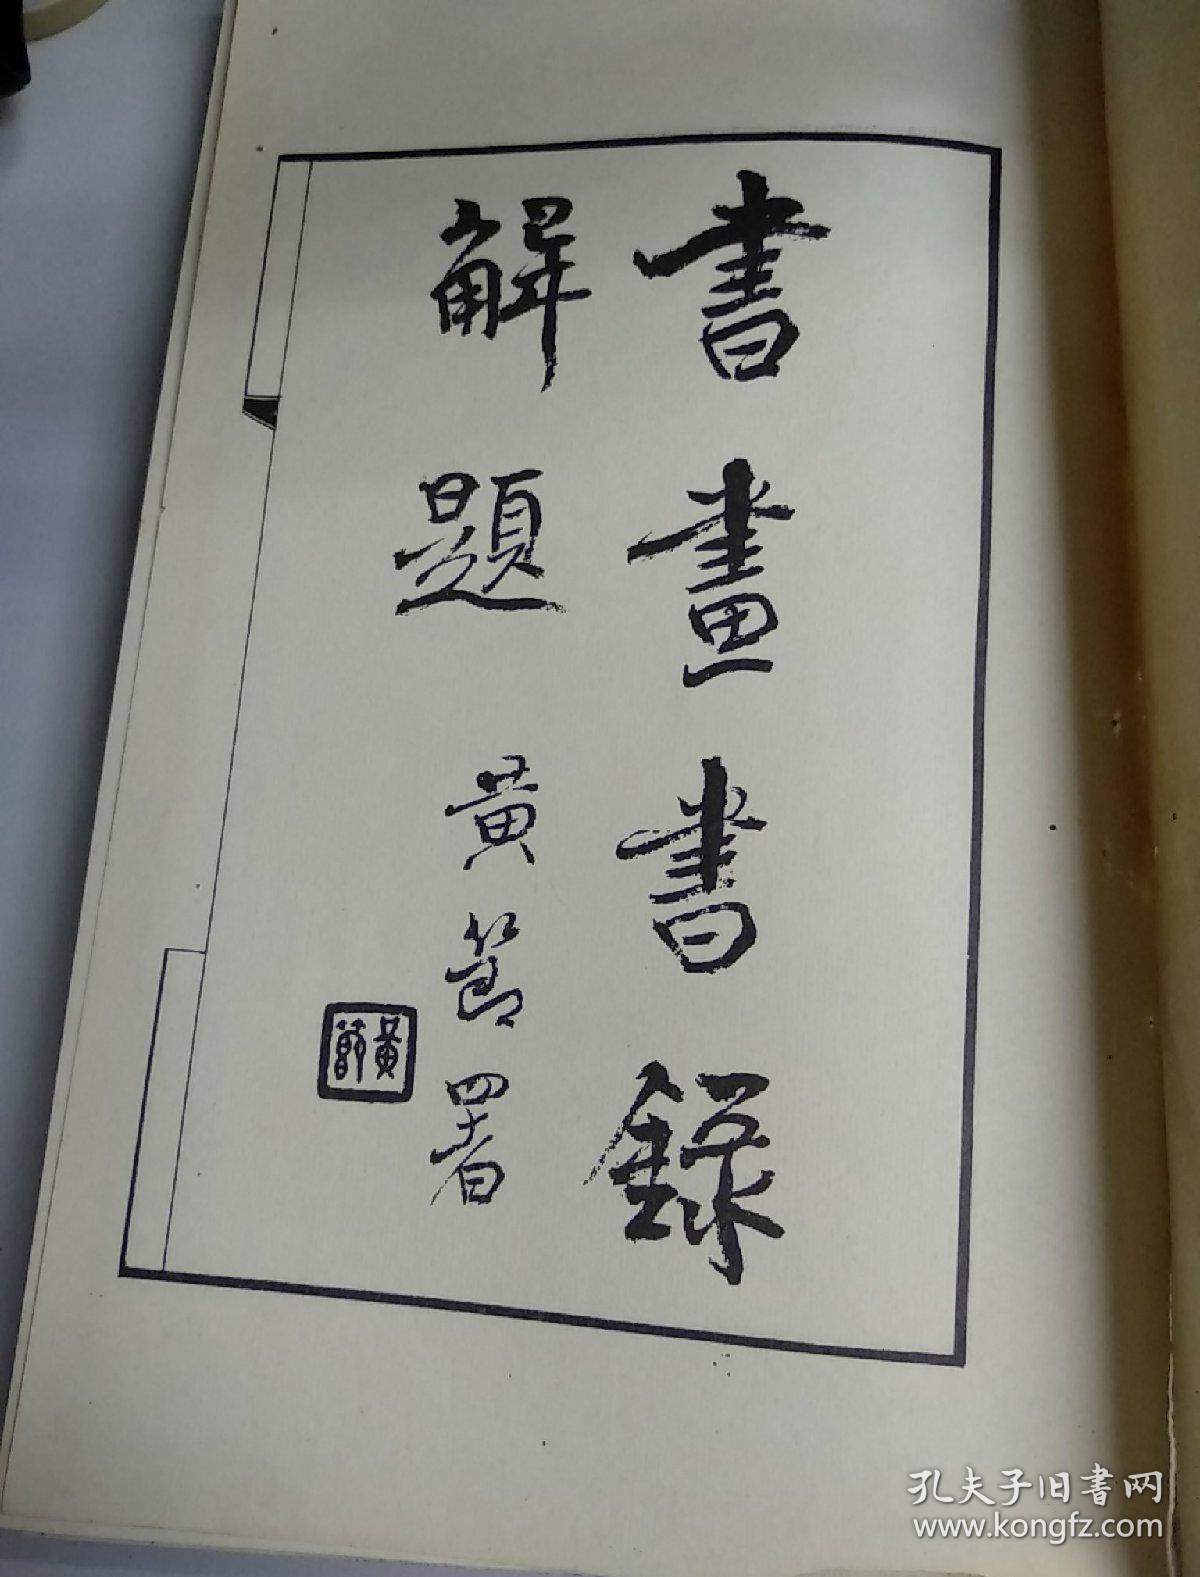 書畫書錄
解題
黄節署
黃節
孔夫子旧书网
www.kongfz.com